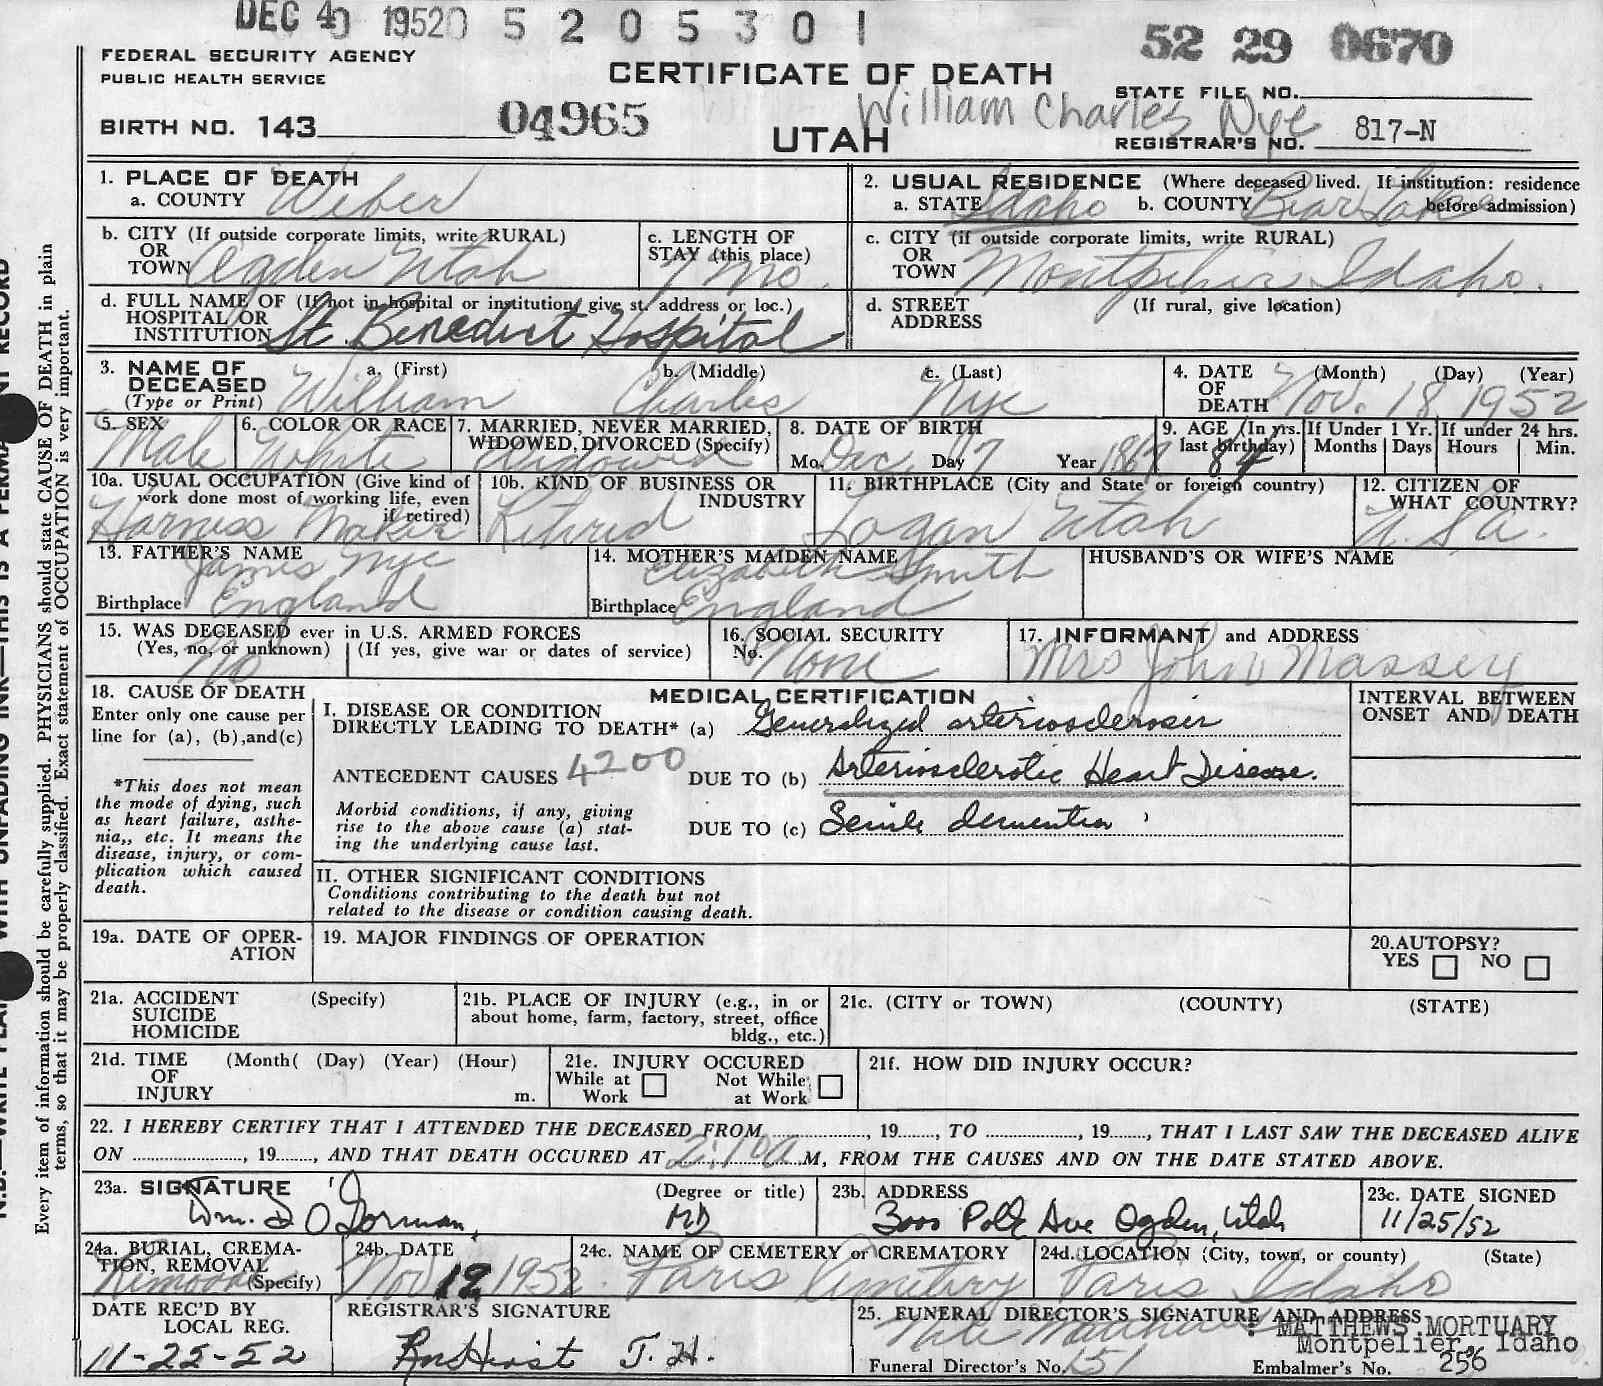 DEC 4 1952 5 2 0 5 3 0 1
52 29 0670
FEDERAL SECURITY AGENCY
PUBLIC HEALTH SERVICE
CERTIFICATE OF DEATH
STATE FILE NO.
William Charles Nye
BIRTH NO. 143 04965
UTAH
REGISTRAR'S NO. 817-N
1. PLACE OF DEATH
a. COUNTY Weber
2. USUAL RESIDENCE (Where deceased lived. If institution: residence before admission)
a. STATE Idaho b. COUNTY Bear Lake
b. CITY (If outside corporate limits, write RURAL)
OR
TOWN Ogden Utah
c. LENGTH OF
STAY (this place)
1 mo.
c. CITY (if outside corporate limits, write RURAL)
OR
TOWN Montpelier Idaho.
d. FULL NAME OF (If not in hospital or institution, give st. address or loc.)
HOSPITAL OR
INSTITUTION St. Benedict Hospital
d. STREET (If rural, give location)
ADDRESS
3. NAME OF DECEASED (Type or Print)
a. (First) b. (Middle) c. (Last)
William Charles Nye
4. DATE OF DEATH (Month) (Day) (Year)
Nov. 18 1952
5. SEX
Male
6. COLOR OR RACE
White
7. MARRIED, NEVER MARRIED,
WIDOWED, DIVORCED (Specify)
Widowed
8. DATE OF BIRTH
Mo. Dec Day 7 Year 1867
9. AGE (In yrs. last birthday) 84
If Under 1 Yr. Months Days
If under 24 hrs. Hours Min.
10a. USUAL OCCUPATION (Give kind of
work done most of working life, even
if retired)
Harness Maker
10b. KIND OF BUSINESS OR
INDUSTRY
Retired
11. BIRTHPLACE (City and State or foreign country)
Logan Utah
12. CITIZEN OF
WHAT COUNTRY?
U.S.A.
13. FATHER'S NAME
James Nye
Birthplace England
14. MOTHER'S MAIDEN NAME
Elizabeth Smith
Birthplace England
HUSBAND'S OR WIFE'S NAME
15. WAS DECEASED ever in U.S. ARMED FORCES
(Yes, no, or unknown) (If yes, give war or dates of service)
No
16. SOCIAL SECURITY
No. None
17. INFORMANT and ADDRESS
Mrs John Massey
18. CAUSE OF DEATH
Enter only one cause per
line for (a), (b),and(c)
*This does not mean
the mode of dying, such
as heart failure, asthe-
nia,, etc. It means the
disease, injury, or com-
plication which caused
death.
MEDICAL CERTIFICATION
I. DISEASE OR CONDITION
DIRECTLY LEADING TO DEATH* (a) Generalized arteriosclerosis
ANTECEDENT CAUSES 4200 DUE TO (b) Arteriosclerotic Heart Disease.
Morbid conditions, if any, giving
rise to the above cause (a) stat-
ing the underlying cause last.
DUE TO (c) Senile dementia
INTERVAL BETWEEN
ONSET AND DEATH
II. OTHER SIGNIFICANT CONDITIONS
Conditions contributing to the death but not
related to the disease or condition causing death.
19a. DATE OF OPER-
ATION
19. MAJOR FINDINGS OF OPERATION
20.AUTOPSY?
YES NO
21a. ACCIDENT (Specify)
SUICIDE
HOMICIDE
21b. PLACE OF INJURY (e.g., in or
about home, farm, factory, street, office
bldg., etc.)
21c. (CITY or TOWN) (COUNTY) (STATE)
21d. TIME (Month( (Day) (Year) (Hour)
OF
INJURY m.
21e. INJURY OCCURED
While at Work Not While at Work
21f. HOW DID INJURY OCCUR?
22. I HEREBY CERTIFY THAT I ATTENDED THE DECEASED FROM , 19 , TO , 19 , THAT I LAST SAW THE DECEASED ALIVE
ON , 19 , AND THAT DEATH OCCURED AT 2:10 a M, FROM THE CAUSES AND ON THE DATE STATED ABOVE.
23a. SIGNATURE (Degree or title)
Wm. J O'Gorman, MD
23b. ADDRESS
3000 Polk Ave Ogden, Utah
23c. DATE SIGNED
11/25/52
24a. BURIAL, CREMA-
TION, REMOVAL
(Specify)
Removal
24b. DATE
Nov 19 1952
24c. NAME OF CEMETERY or CREMATORY
Paris Cemetery
24d. LOCATION (City, town, or county) (State)
Paris Idaho
DATE REC'D BY
LOCAL REG.
11-25-52
REGISTRAR'S SIGNATURE
J.H.
25. FUNERAL DIRECTOR'S SIGNATURE AND ADDRESS
MATTHEWS MORTUARY
Montpelier, Idaho
Funeral Director's No. 151 Embalmer's No. 256
Every item of information should be carefully supplied. PHYSICIANS should state CAUSE OF DEATH in plain
terms, so that it may be properly classified. Exact statement of OCCUPATION is very important.